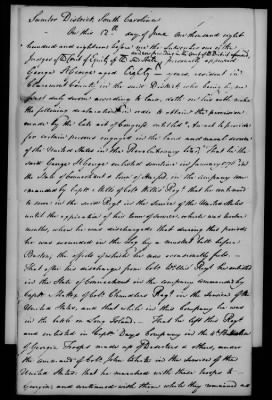 Sumter District South Carolina
On this 12th day of June one thousand eight
hundred and eighteen before me the Subscriber one of the
Judges of the Court of Equity of the said State personally appeared
George St George aged Eighty years resident in
Claremont County in the said District who being by me
first duly sworn according to law, doth on his oath make
the following declaration in order to obtain the provision
made by the late act of Congress entitled "An act to provide
for certain persons engaged in the land and naval service
of the United States in the Revolutionary War" That he the
said George St George enlisted sometime in January 1776 in
the State of Connecticut a town of in the company
commanded by Capt Mills of Colo Willis's Regt that he continued
to serve in the said Regt in the service of the United States
until the expiration of his term of service which was twelve
months, when he was discharged that during this period
he was wounded in the leg by a musket ball before
Boston, the effects of which he was occasionally felt.
That after his discharge from Colo Willis's Regt he enlisted
in the State of Connecticut in the company commanded by
Capt Mattox of Colo Chandlers Regt in the service of the
United States, and that while in this Company he was
in the battle on Long Island. That he left this Regt
and enlisted in Capt Days Company in the 4th Battalion
of Georgia Troops made up of Deserters & others, under
the command of Colo John White in the service of the
United States. that he marched with these troops to
Georgia and continued with them while they remained as